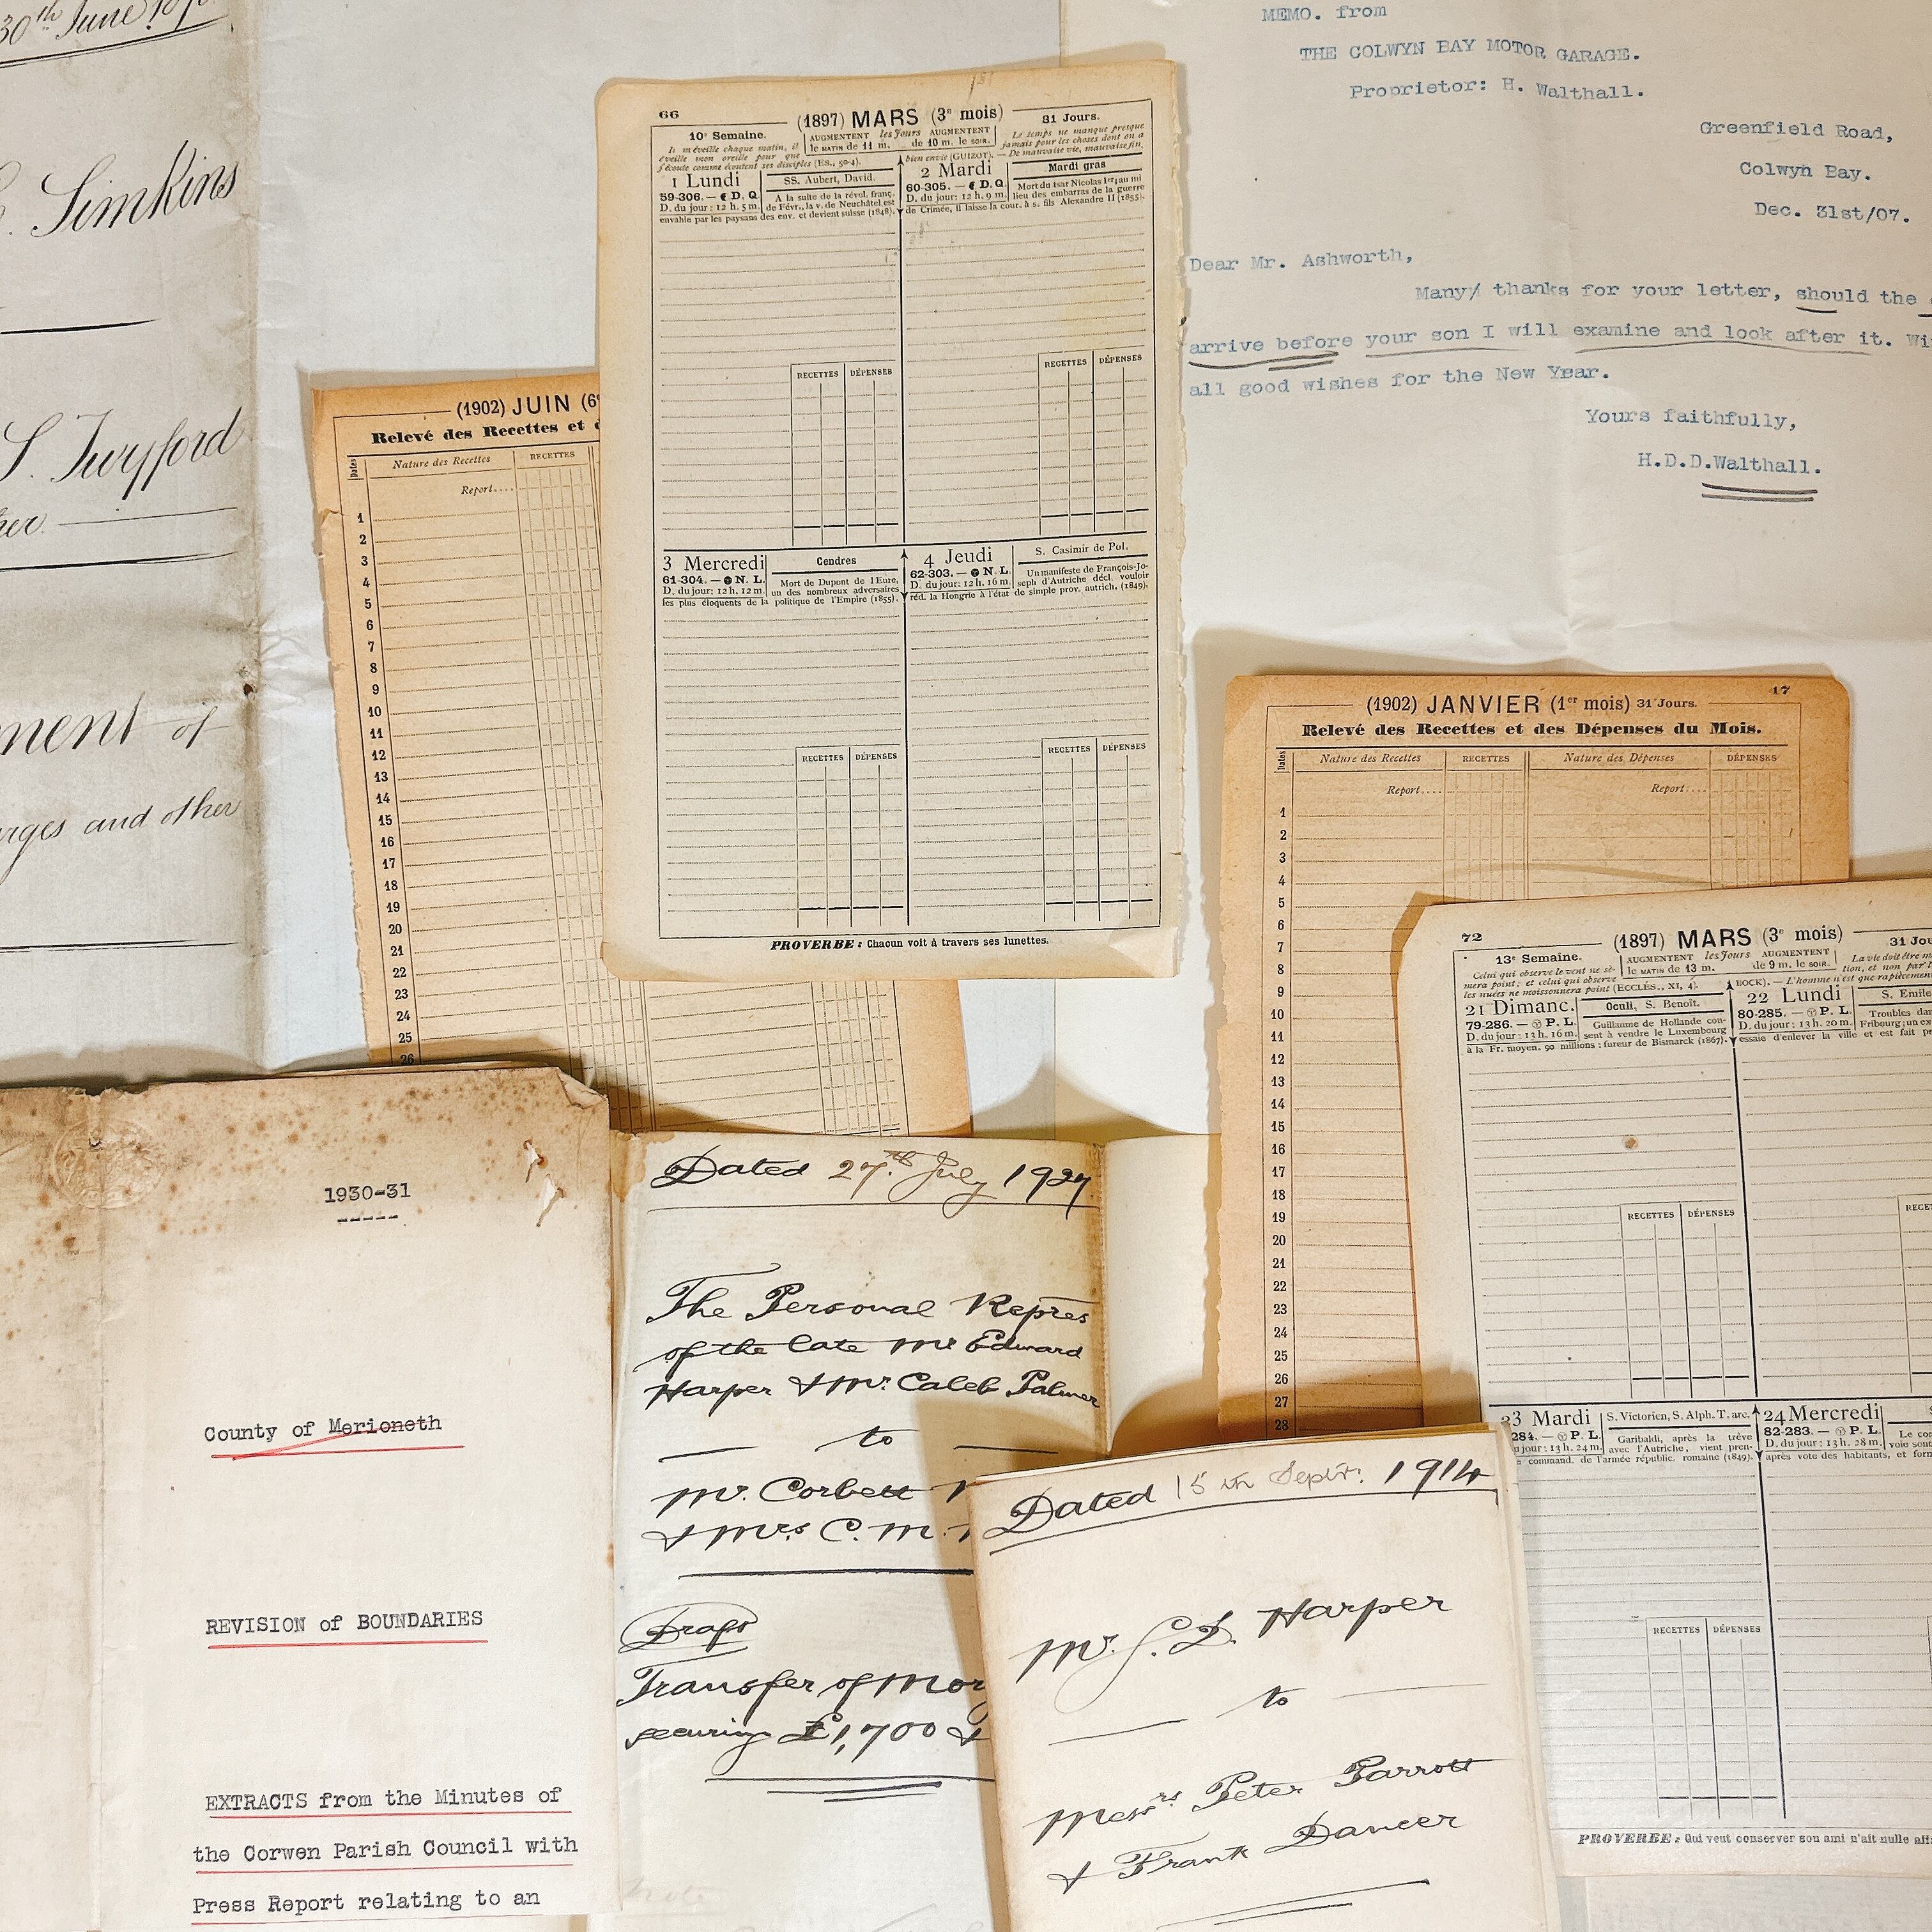 30th June
Simkins
S. Twyford
ment of
and other
(1902) JUIN
Relevé des Recettes et
Dates
Nature des Recettes
RECETTES
Report....
1
2
3
4
5
6
7
8
9
10
11
12
13
14
15
16
17
18
19
20
21
22
23
24
25
26
66
(1897) MARS (3e mois)
10e Semaine.
AUGMENTENT les Jours AUGMENTENT
le MATIN de 11 m. de 10 m. le SOIR.
31 Jours.
Il m'éveille chaque matin, il
éveille mon oreille pour que
j'écoute comme écoutent ses disciples (Es., 50-4).
Le temps ne manque presque
jamais pour les choses dont on a
bien envie (GUIZOT). — De mauvaise vie, mauvaise fin.
1 Lundi
59-306. — D. Q.
D. du jour: 12 h. 5 m.
SS. Aubert, David.
A la suite de la révol. franç.
de Févr., la v. de Neuchâtel est
envahie par les paysans des env. et devient suisse (1848).
2 Mardi
60-305. — D. Q.
D. du jour: 12 h. 9 m.
Mardi gras
Mort du tsar Nicolas Ier; au mi
lieu des embarras de la guerre
de Crimée, il laisse la cour. à s. fils Alexandre II (1855).
RECETTES DÉPENSES
RECETTES DÉPENSES
3 Mercredi
61-304. — N. L.
D. du jour: 12 h. 12 m.
Cendres
Mort de Dupont de l'Eure,
un des nombreux adversaires
les plus éloquents de la politique de l'Empire (1855).
4 Jeudi
62-303. — N. L.
D. du jour: 12 h. 16 m.
S. Casimir de Pol.
Un manifeste de François-Jo-
seph d'Autriche décl. vouloir
réd. la Hongrie à l'état de simple prov. autrich. (1849).
RECETTES DÉPENSES
RECETTES DÉPENSES
PROVERBE: Chacun voit à travers ses lunettes.
MEMO. from
THE COLWYN BAY MOTOR GARAGE.
Proprietor: H. Walthall.
Greenfield Road,
Colwyn Bay.
Dec. 31st/07.
Dear Mr. Ashworth,
Many thanks for your letter, should the
arrive before your son I will examine and look after it. Wi
all good wishes for the New Year.
Yours faithfully,
H.D.D.Walthall.
17
(1902) JANVIER (1er mois) 31 Jours.
Relevé des Recettes et des Dépenses du Mois.
Dates
Nature des Recettes
RECETTES
Nature des Dépenses
DÉPENSES
Report....
Report....
1
2
3
4
5
6
7
8
9
10
11
12
13
14
15
16
17
18
19
20
21
22
23
24
25
26
27
28
72
(1897) MARS (3e mois)
31 Jou
13e Semaine.
AUGMENTENT les Jours AUGMENTENT
le MATIN de 13 m. de 9 m. le SOIR.
Celui qui observe le vent ne sè-
mera point; et celui qui observe
les nuées ne moissonnera point (ECCLÉS., XI, 4).
La vie doit être
tion, et non par
BOCK). — L'homme n'est que rapiècement
21 Dimanc.
79-286. — P. L.
D. du jour: 13 h. 16 m.
Oculi, S. Benoît.
Guillaume de Hollande con-
sent à vendre le Luxembourg
à la Fr. moyen. 90 millions: fureur de Bismarck (1867).
22 Lundi
80-285. — P. L.
D. du jour: 13 h. 20 m.
S. Emile
Troubles dan
Fribourg; un ex
essaie d'enlever la ville et est fait pr
RECETTES DÉPENSES
RECET
23 Mardi
284. — P. L.
jour: 13 h. 24 m.
S. Victorien, S. Alph. T. arc.
Garibaldi, après la trêve
avec l'Autriche, vient pren-
command. de l'armée républic. romaine (1849).
24 Mercredi
82-283. — P. L.
D. du jour: 13 h. 28 m.
Le con
voie sont
après vote des habitants, et form
RECETTES DÉPENSES
PROVERBE: Qui veut conserver son ami n'ait nulle affa
1930-31
County of Merioneth
REVISION of BOUNDARIES
EXTRACTS from the Minutes of
the Corwen Parish Council with
Press Report relating to an
Dated 27th July 1927
The Personal Repres
of the late Mr Edward
Harper & Mr. Caleb Palmer
to
Mr. Corbett
& Mrs C. M.
Draft
Transfer of Mor
securing £1,700 &
Dated 15th Septr. 1914
Mr. S. D. Harper
to
Messrs Peter Parrott
& Frank Dancer